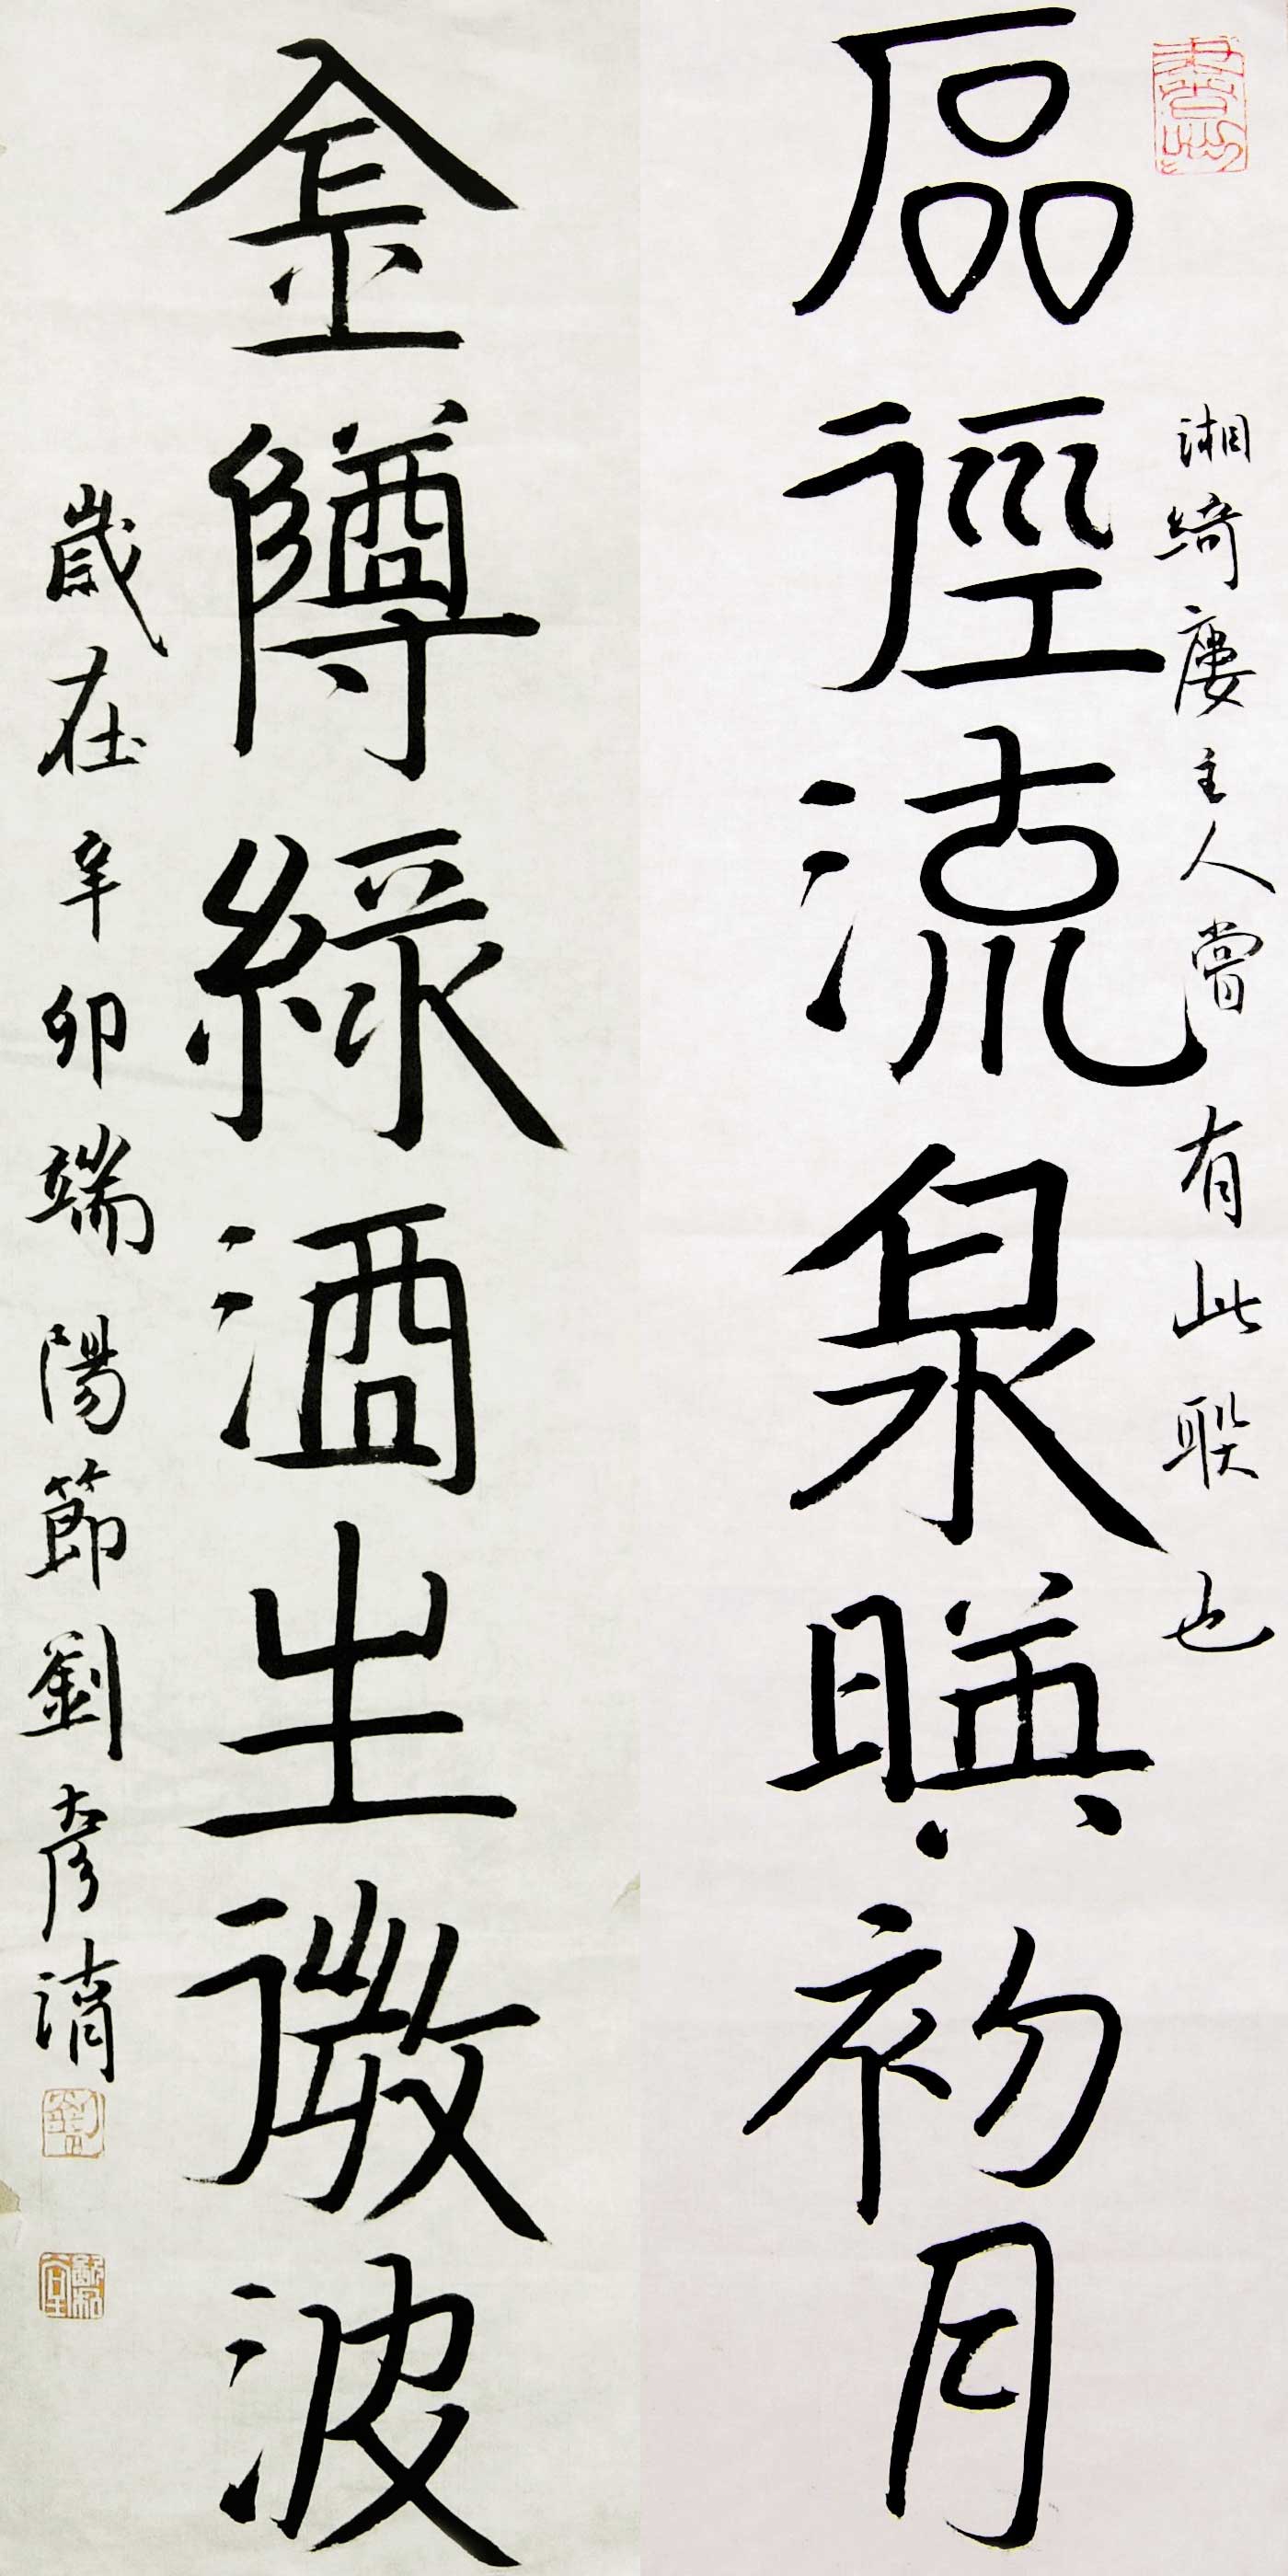 徑流泉暎初月
湘綺廔主人嘗有此聮也
金樽綠酒生微波
歲在辛卯端陽節劉彥湖
劉